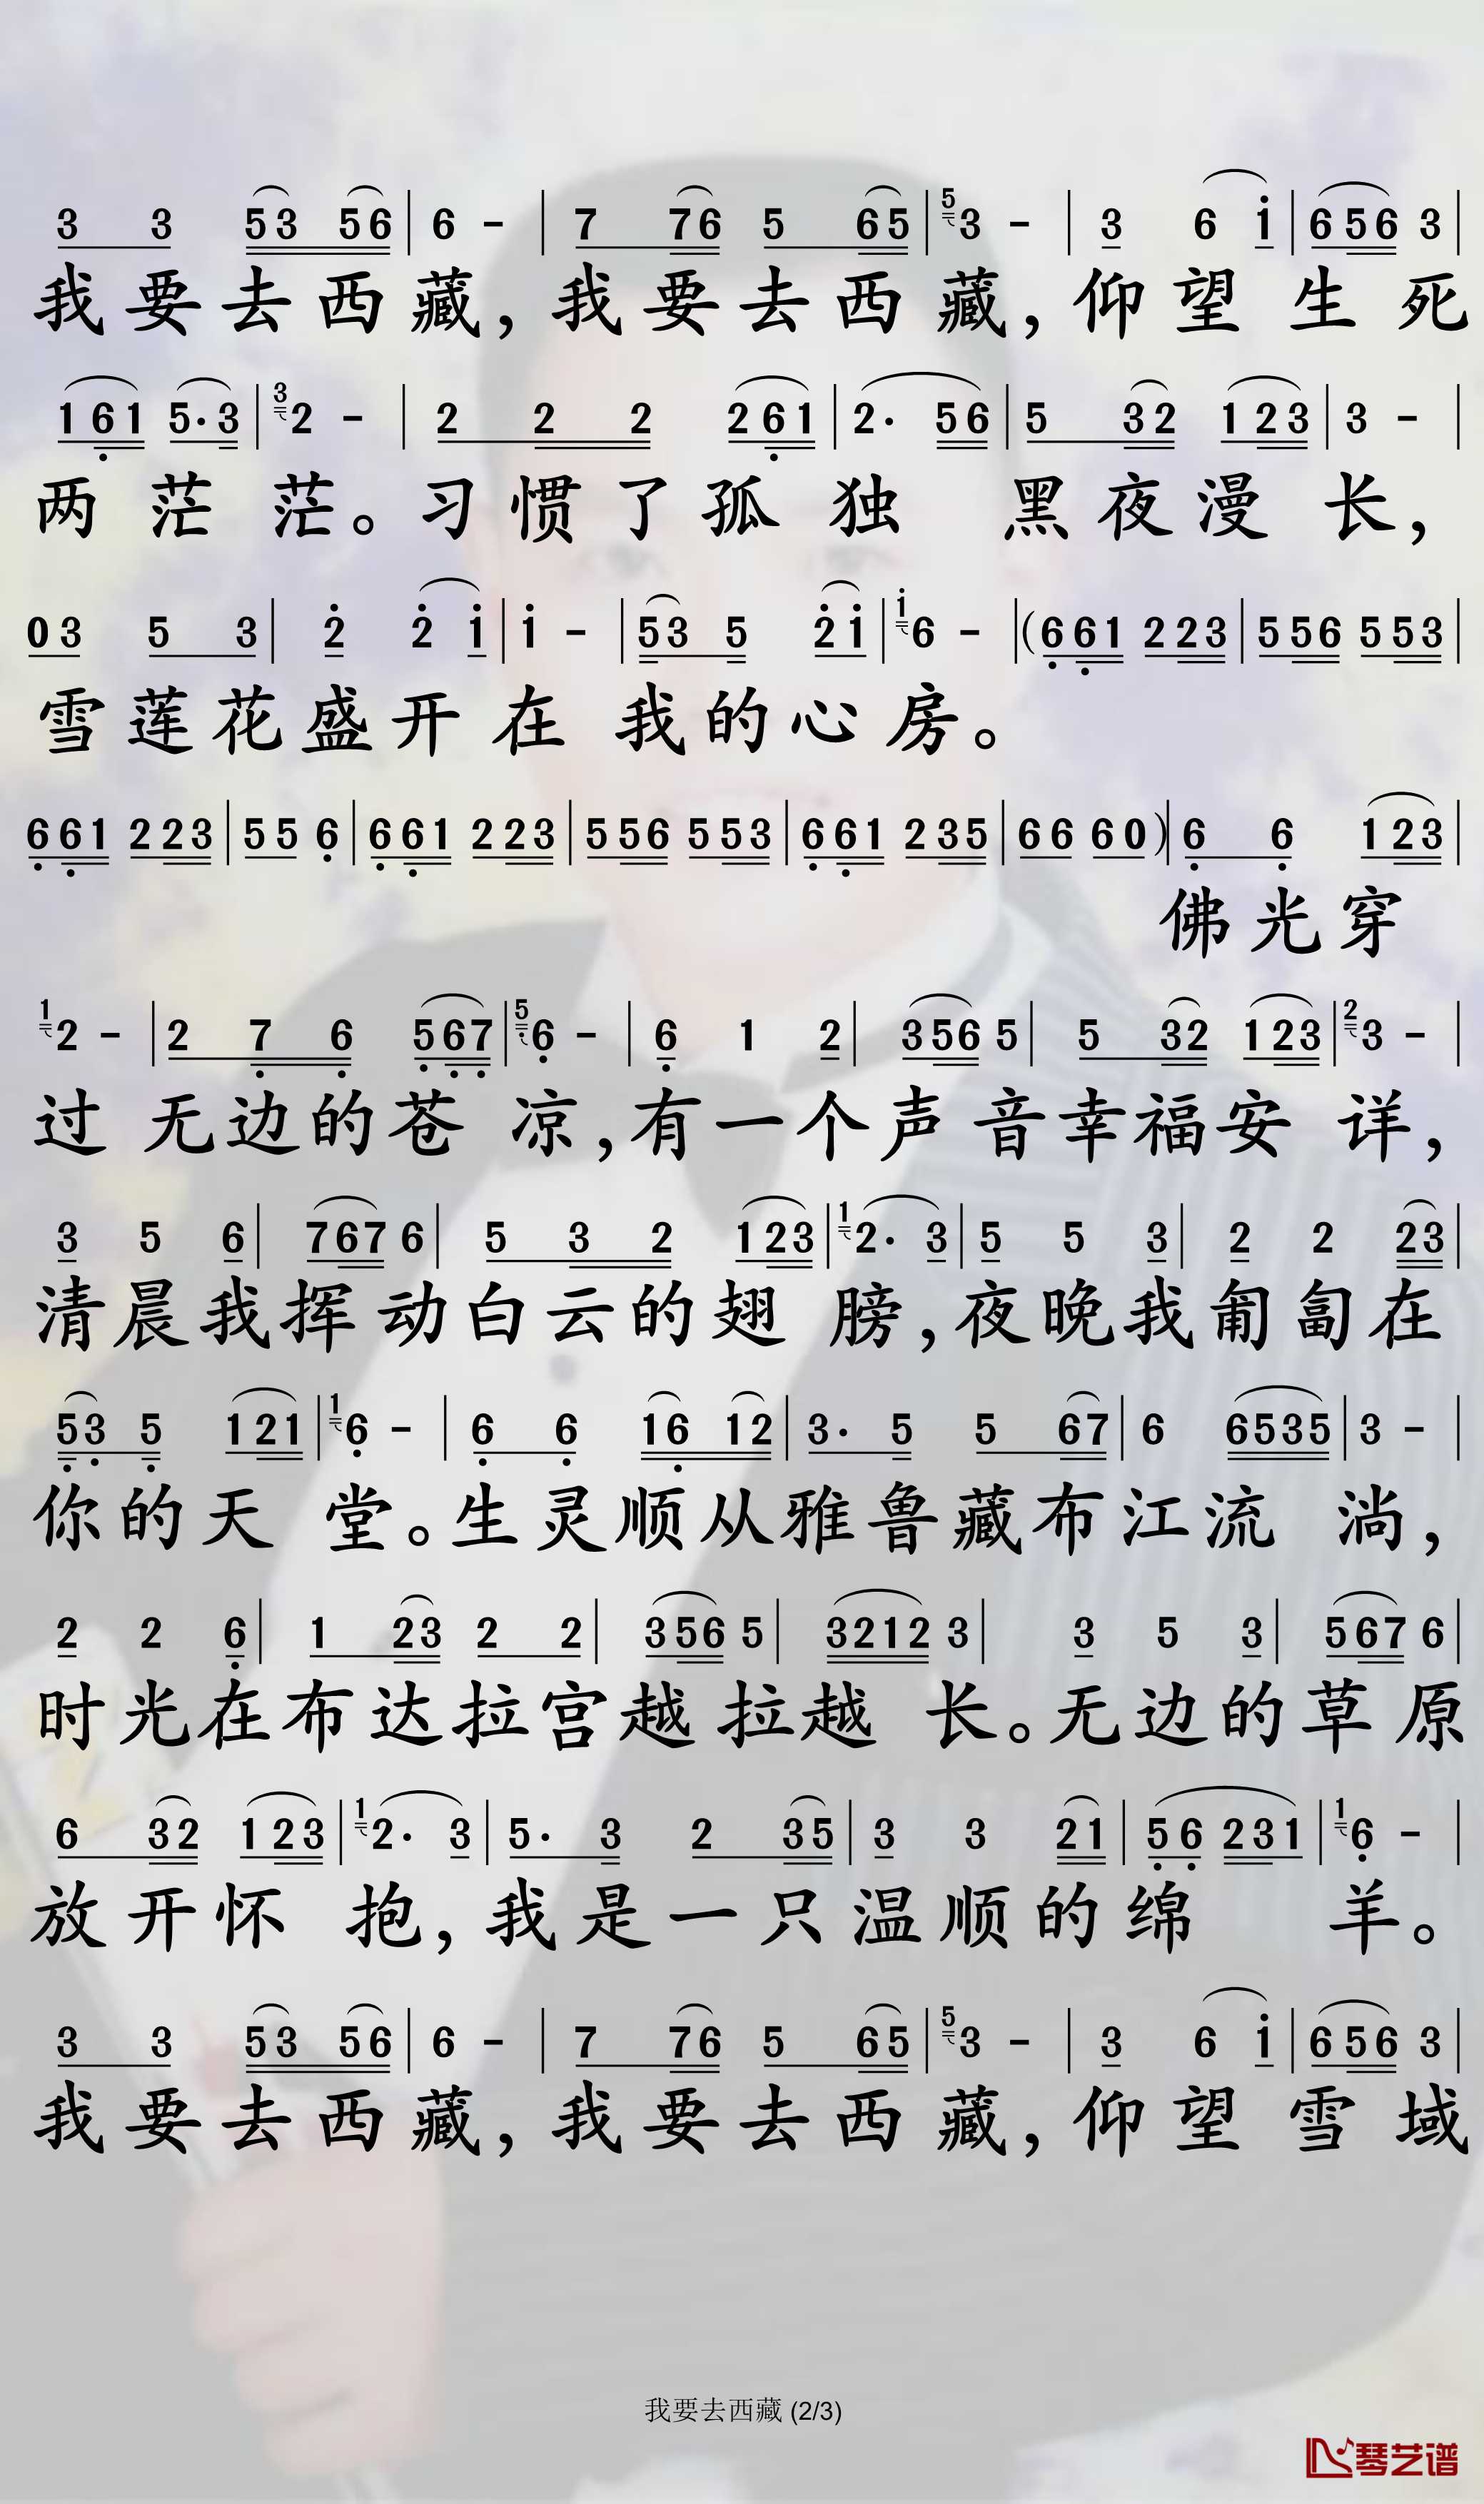 3 3 53 56 | 6 - | 7 76 5 65 | 5 3 - | 3 6 i | 656 3 |
我要去西藏，我要去西藏，仰望生死
161 5·3 | 3 2 - | 2 2 2 261 | 2· 56 | 5 32 123 | 3 - |
两茫茫。习惯了孤独 黑夜漫长，
03 5 3 | 2 2 i | i - | 53 5 2i | i 6 - | (661 223 | 556 553 |
雪莲花盛开在我的心房。
661 223 | 55 6 | 661 223 | 556 553 | 661 235 | 66 60) | 6 6 123 |
佛光穿
1 2 - | 2 7 6 567 | 5 6 - | 6 1 2 | 356 5 | 5 32 123 | 2 3 - |
过无边的苍凉，有一个声音幸福安详，
3 5 6 | 767 6 | 5 3 2 123 | 1 2· 3 | 5 5 3 | 2 2 23 |
清晨我挥动白云的翅膀，夜晚我匍匐在
53 5 121 | 1 6 - | 6 6 16 12 | 3· 5 5 67 | 6 6535 | 3 - |
你的天堂。生灵顺从雅鲁藏布江流淌，
2 2 6 | 1 23 2 2 | 356 5 | 3212 3 | 3 5 3 | 567 6 |
时光在布达拉宫越拉越长。无边的草原
6 32 123 | 1 2· 3 | 5· 3 2 35 | 3 3 21 | 56 231 | 1 6 - |
放开怀抱，我是一只温顺的绵羊。
3 3 53 56 | 6 - | 7 76 5 65 | 5 3 - | 3 6 i | 656 3 |
我要去西藏，我要去西藏，仰望雪域
我要去西藏 (2/3)
琴艺谱